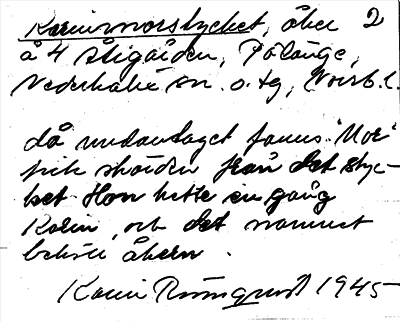 Karinmorstycket, åker 2
å 4 Stigården, Pålänge,
Nederkalix sn. o. tg, Norrb. l.
då undantaget fanns. "Mor"
fick skörden från det styc-
ket. Hon hette en gång
Karin, och det namnet
behöll åkern.
Karin Rönnquist 1945